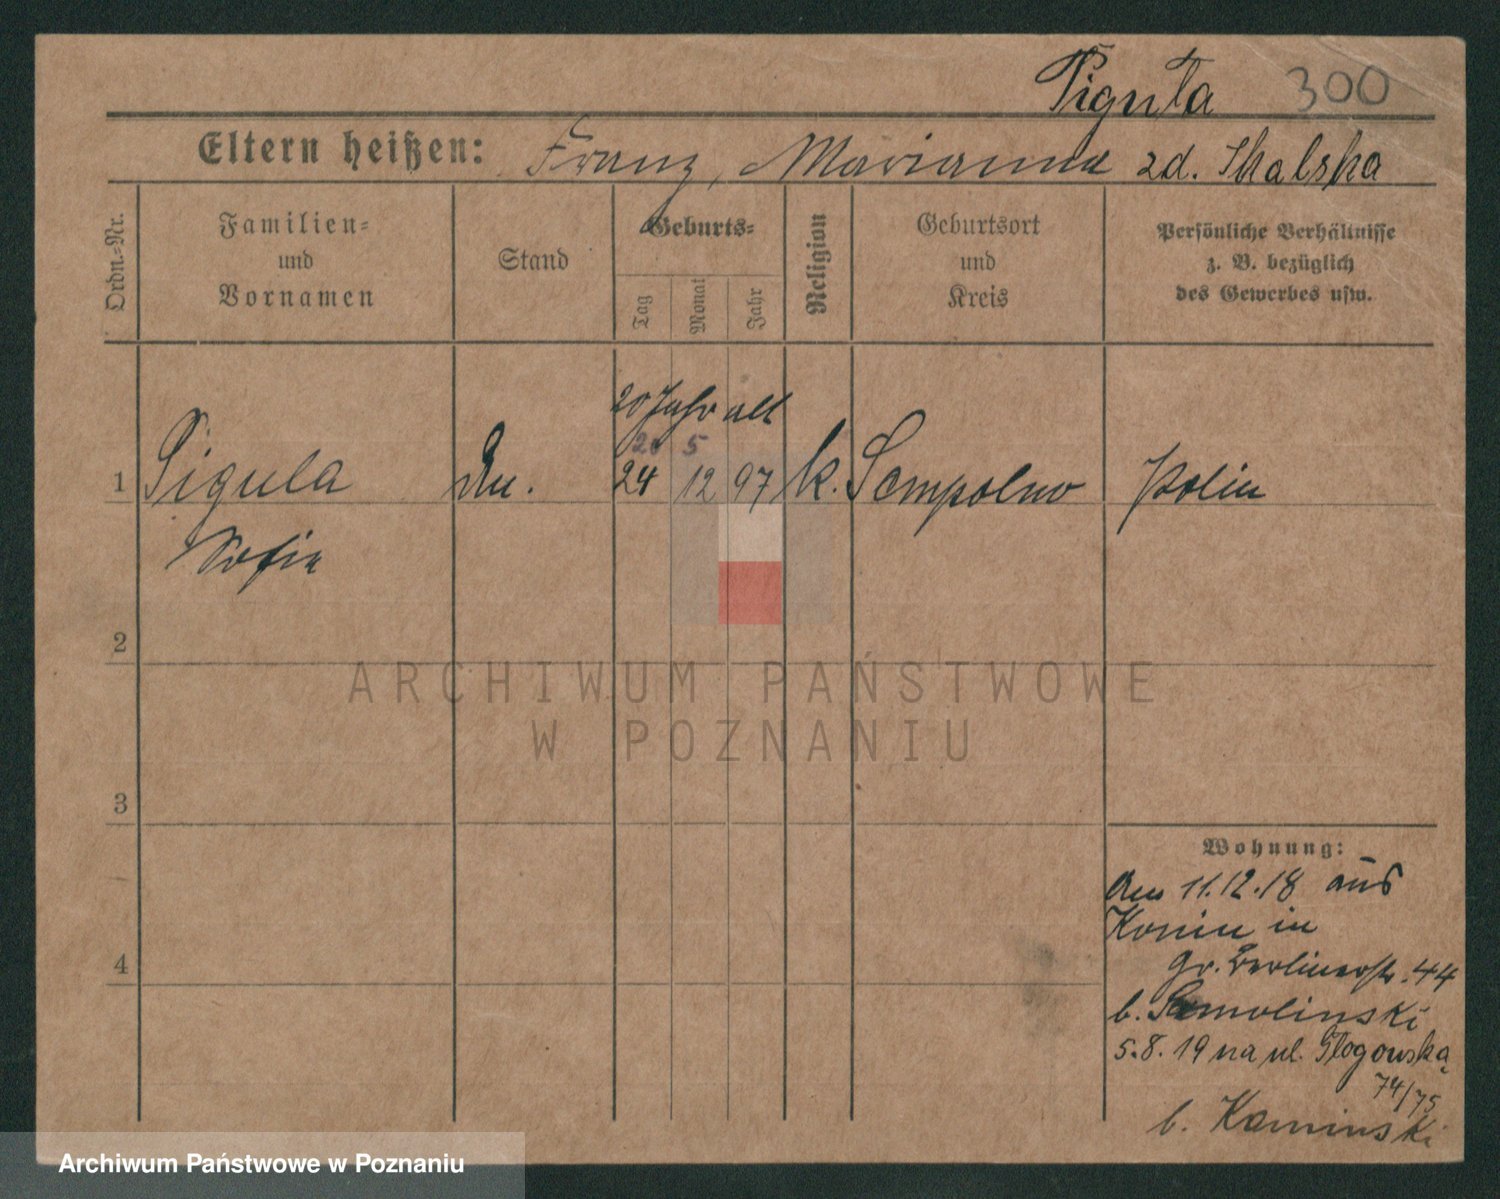 Piguła 300
Eltern heißen: Franz, Marianna zd. Skalska
Ordn.-Nr.
Familien-
und
Vornamen
Stand
Geburts-
Tag
Monat
Jahr
Religion
Geburtsort
und
Kreis
Persönliche Verhältnisse
z. B. bezüglich
des Gewerbes usw.
20 Jahr alt
20 5
1 Pigula 24 12 97 k. Sempolno Polin
Sofia
2
3
4
Wohnung:
den 11.12.18 aus
Konin in
Gr. Berlinerstr. 44
b. Samolinski
5.8.19 na ul. Głogowską
74/75
b. Kaminski
ARCHIWUM PAŃSTWOWE
W POZNANIU
Archiwum Państwowe w Poznaniu